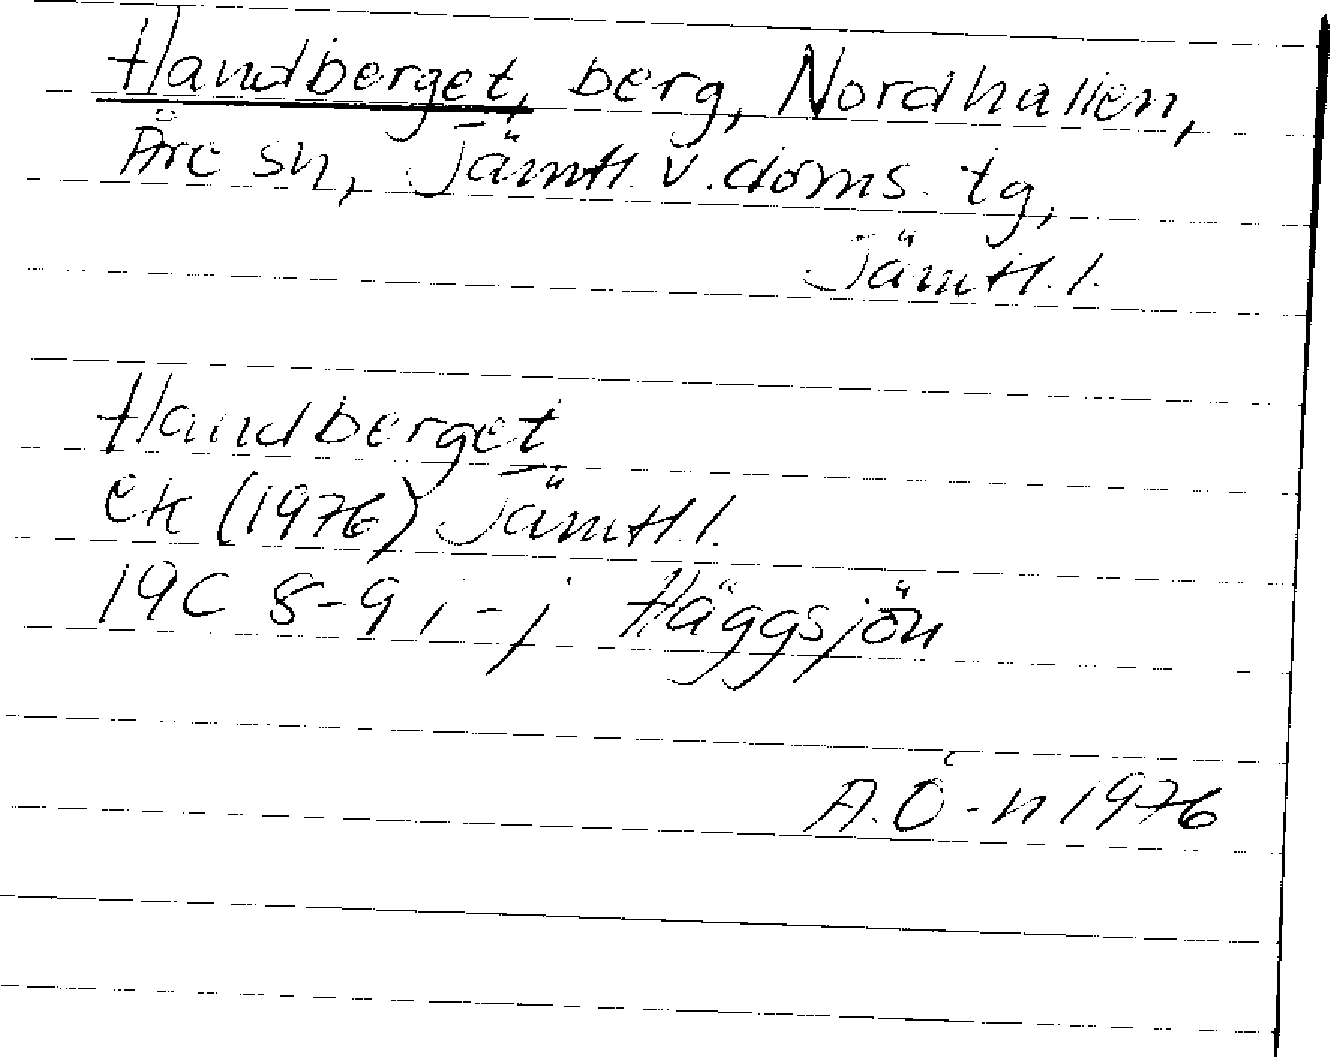 Handberget, berg, Nordhallen,
Åre sn, Jämtl. v. doms. tg,
Jämtl. l.
Handberget
ek (1976) Jämtl. l.
19C 8-9 i-j Häggsjön
A. Ö-n 1976